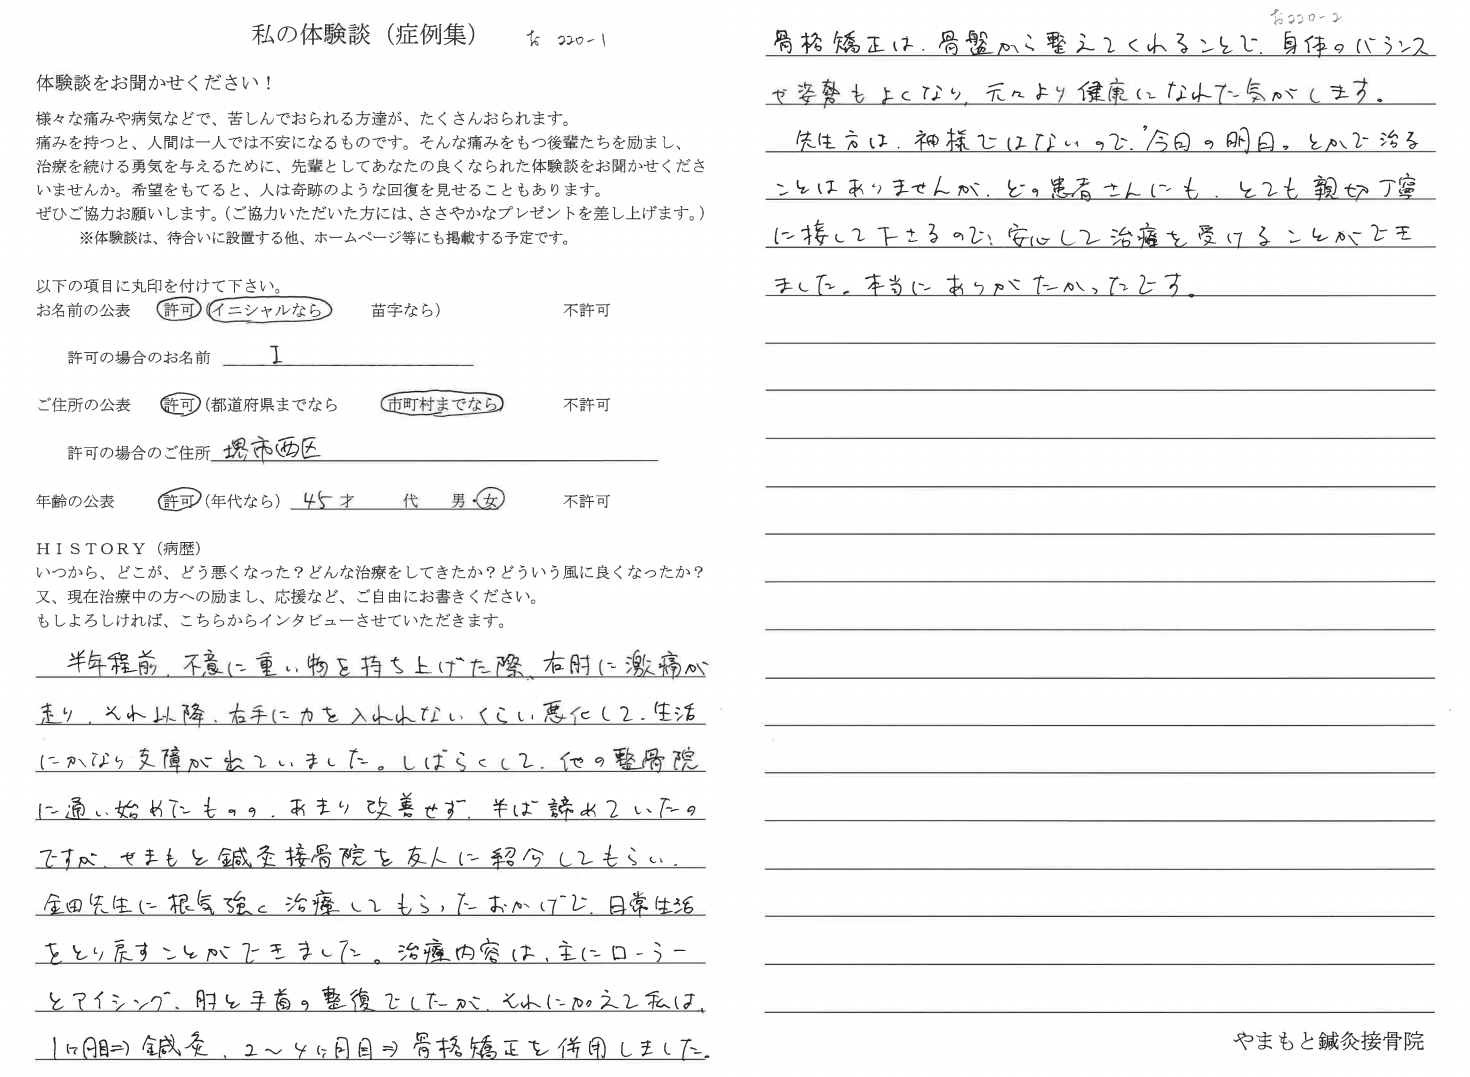 私の体験談（症例集） な 220-1
体験談をお聞かせください！
様々な痛みや病気などで、苦しんでおられる方達が、たくさんおられます。
痛みを持つと、人間は一人では不安になるものです。そんな痛みをもつ後輩たちを励まし、
治療を続ける勇気を与えるために、先輩としてあなたの良くなられた体験談をお聞かせくださ
いませんか。希望をもてると、人は奇跡のような回復を見せることもあります。
ぜひご協力お願いします。（ご協力いただいた方には、ささやかなプレゼントを差し上げます。）
※体験談は、待合いに設置する他、ホームページ等にも掲載する予定です。
以下の項目に丸印を付けて下さい。
お名前の公表 許可（イニシャルなら 苗字なら） 不許可
許可の場合のお名前 I
ご住所の公表 許可（都道府県までなら 市町村までなら） 不許可
許可の場合のご住所 堺市西区
年齢の公表 許可（年代なら） 45才 代 男・女 不許可
ＨＩＳＴＯＲＹ（病歴）
いつから、どこが、どう悪くなった？どんな治療をしてきたか？どういう風に良くなったか？
又、現在治療中の方への励まし、応援など、ご自由にお書きください。
もしよろしければ、こちらからインタビューさせていただきます。
半年程前、不意に重い物を持ち上げた際、右肘に激痛が
走り、それ以降、右手に力を入れれないくらい悪化して、生活
にかなり支障が出ていました。しばらくして、他の整骨院
に通い始めたものの、あまり改善せず、半ば諦めていたの
ですが、やまもと鍼灸接骨院を友人に紹介してもらい、
金田先生に根気強く治療してもらったおかげで、日常生活
をとり戻すことができました。治療内容は、主にローラー
とアイシング、肘と手首の整復でしたが、それに加えて私は、
1ヶ月目⇒鍼灸、2〜4ヶ月目⇒骨格矯正を併用しました。
な220-2
骨格矯正は、骨盤から整えてくれることで、身体のバランス
や姿勢もよくなり、元々より健康になれた気がします。
先生方は、神様ではないので、“今日の明日。とかで治る
ことはありませんが、どの患者さんにも、とても親切丁寧
に接して下さるので、安心して治療を受けることができ
ました。本当にありがたかったです。
やまもと鍼灸接骨院